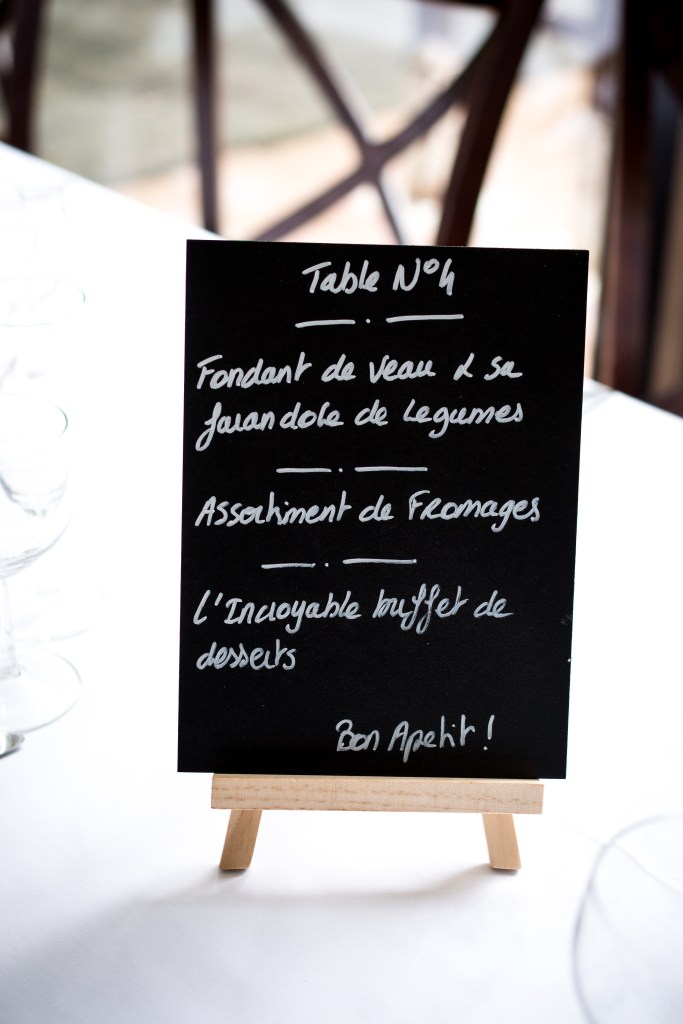 Table N°4
Fondant de veau & sa
farandole de legumes
Assortiment de Fromages
L'Incroyable buffet de
desserts
Bon Apetit !